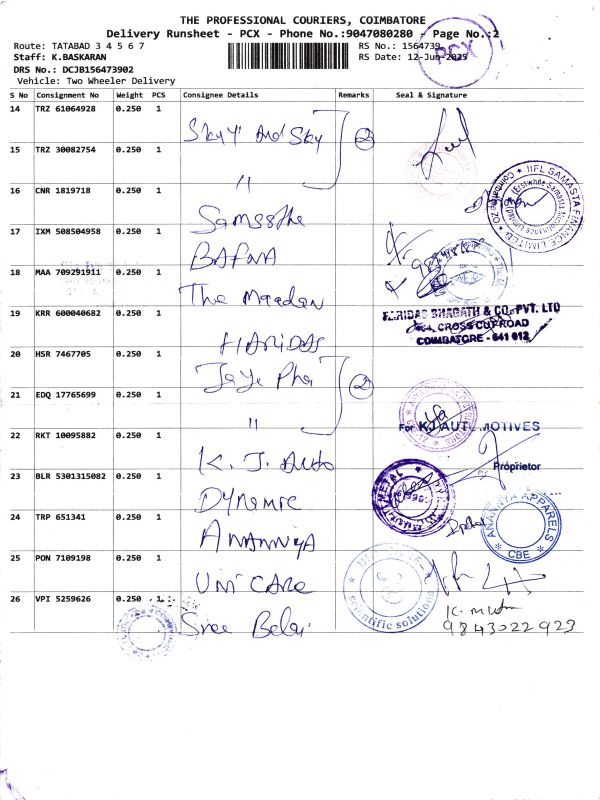 THE PROFESSIONAL COURIERS, COIMBATORE
Delivery Runsheet - PCX - Phone No.:9047080280 - Page No.:2
Route: TATABAD 3 4 5 6 7
RS No.: 1564739
PCX
Staff: K.BASKARAN
RS Date: 12-Jun-2025
DRS No.: DCJB156473902
Vehicle: Two Wheeler Delivery
S No Consignment No Weight PCS Consignee Details Remarks Seal & Signature
14 TRZ 61064928 0.250 1 Skyy And Sky 2
15 TRZ 30082754 0.250 1 "
16 CNR 1819718 0.250 1
IIFL SAMASTA FINANCE LIMITED
17 IXM 508504958 0.250 1 BAFNA
18 MAA 709291911 0.250 1 The Maadan
19 KRR 600040682 0.250 1 HARIDAS
HARIDAS BHAGATH & CO. PVT. LTD
464, CROSS CUT ROAD
COIMBATORE - 641 012
20 HSR 7467705 0.250 1 2
21 EDQ 17765699 0.250 1 "
22 RKT 10095882 0.250 1 K. J. Auto
For KJ AUTOMOTIVES
Proprietor
23 BLR 5301315082 0.250 1
METAL
24 TRP 651341 0.250 1 ANANNYA
ANANNYA APPARELS
CBE
25 PON 7109198 0.250 1 UNICARE
scientific solutions
26 VPI 5259626 0.250 1 Sree Balaji
9843022923